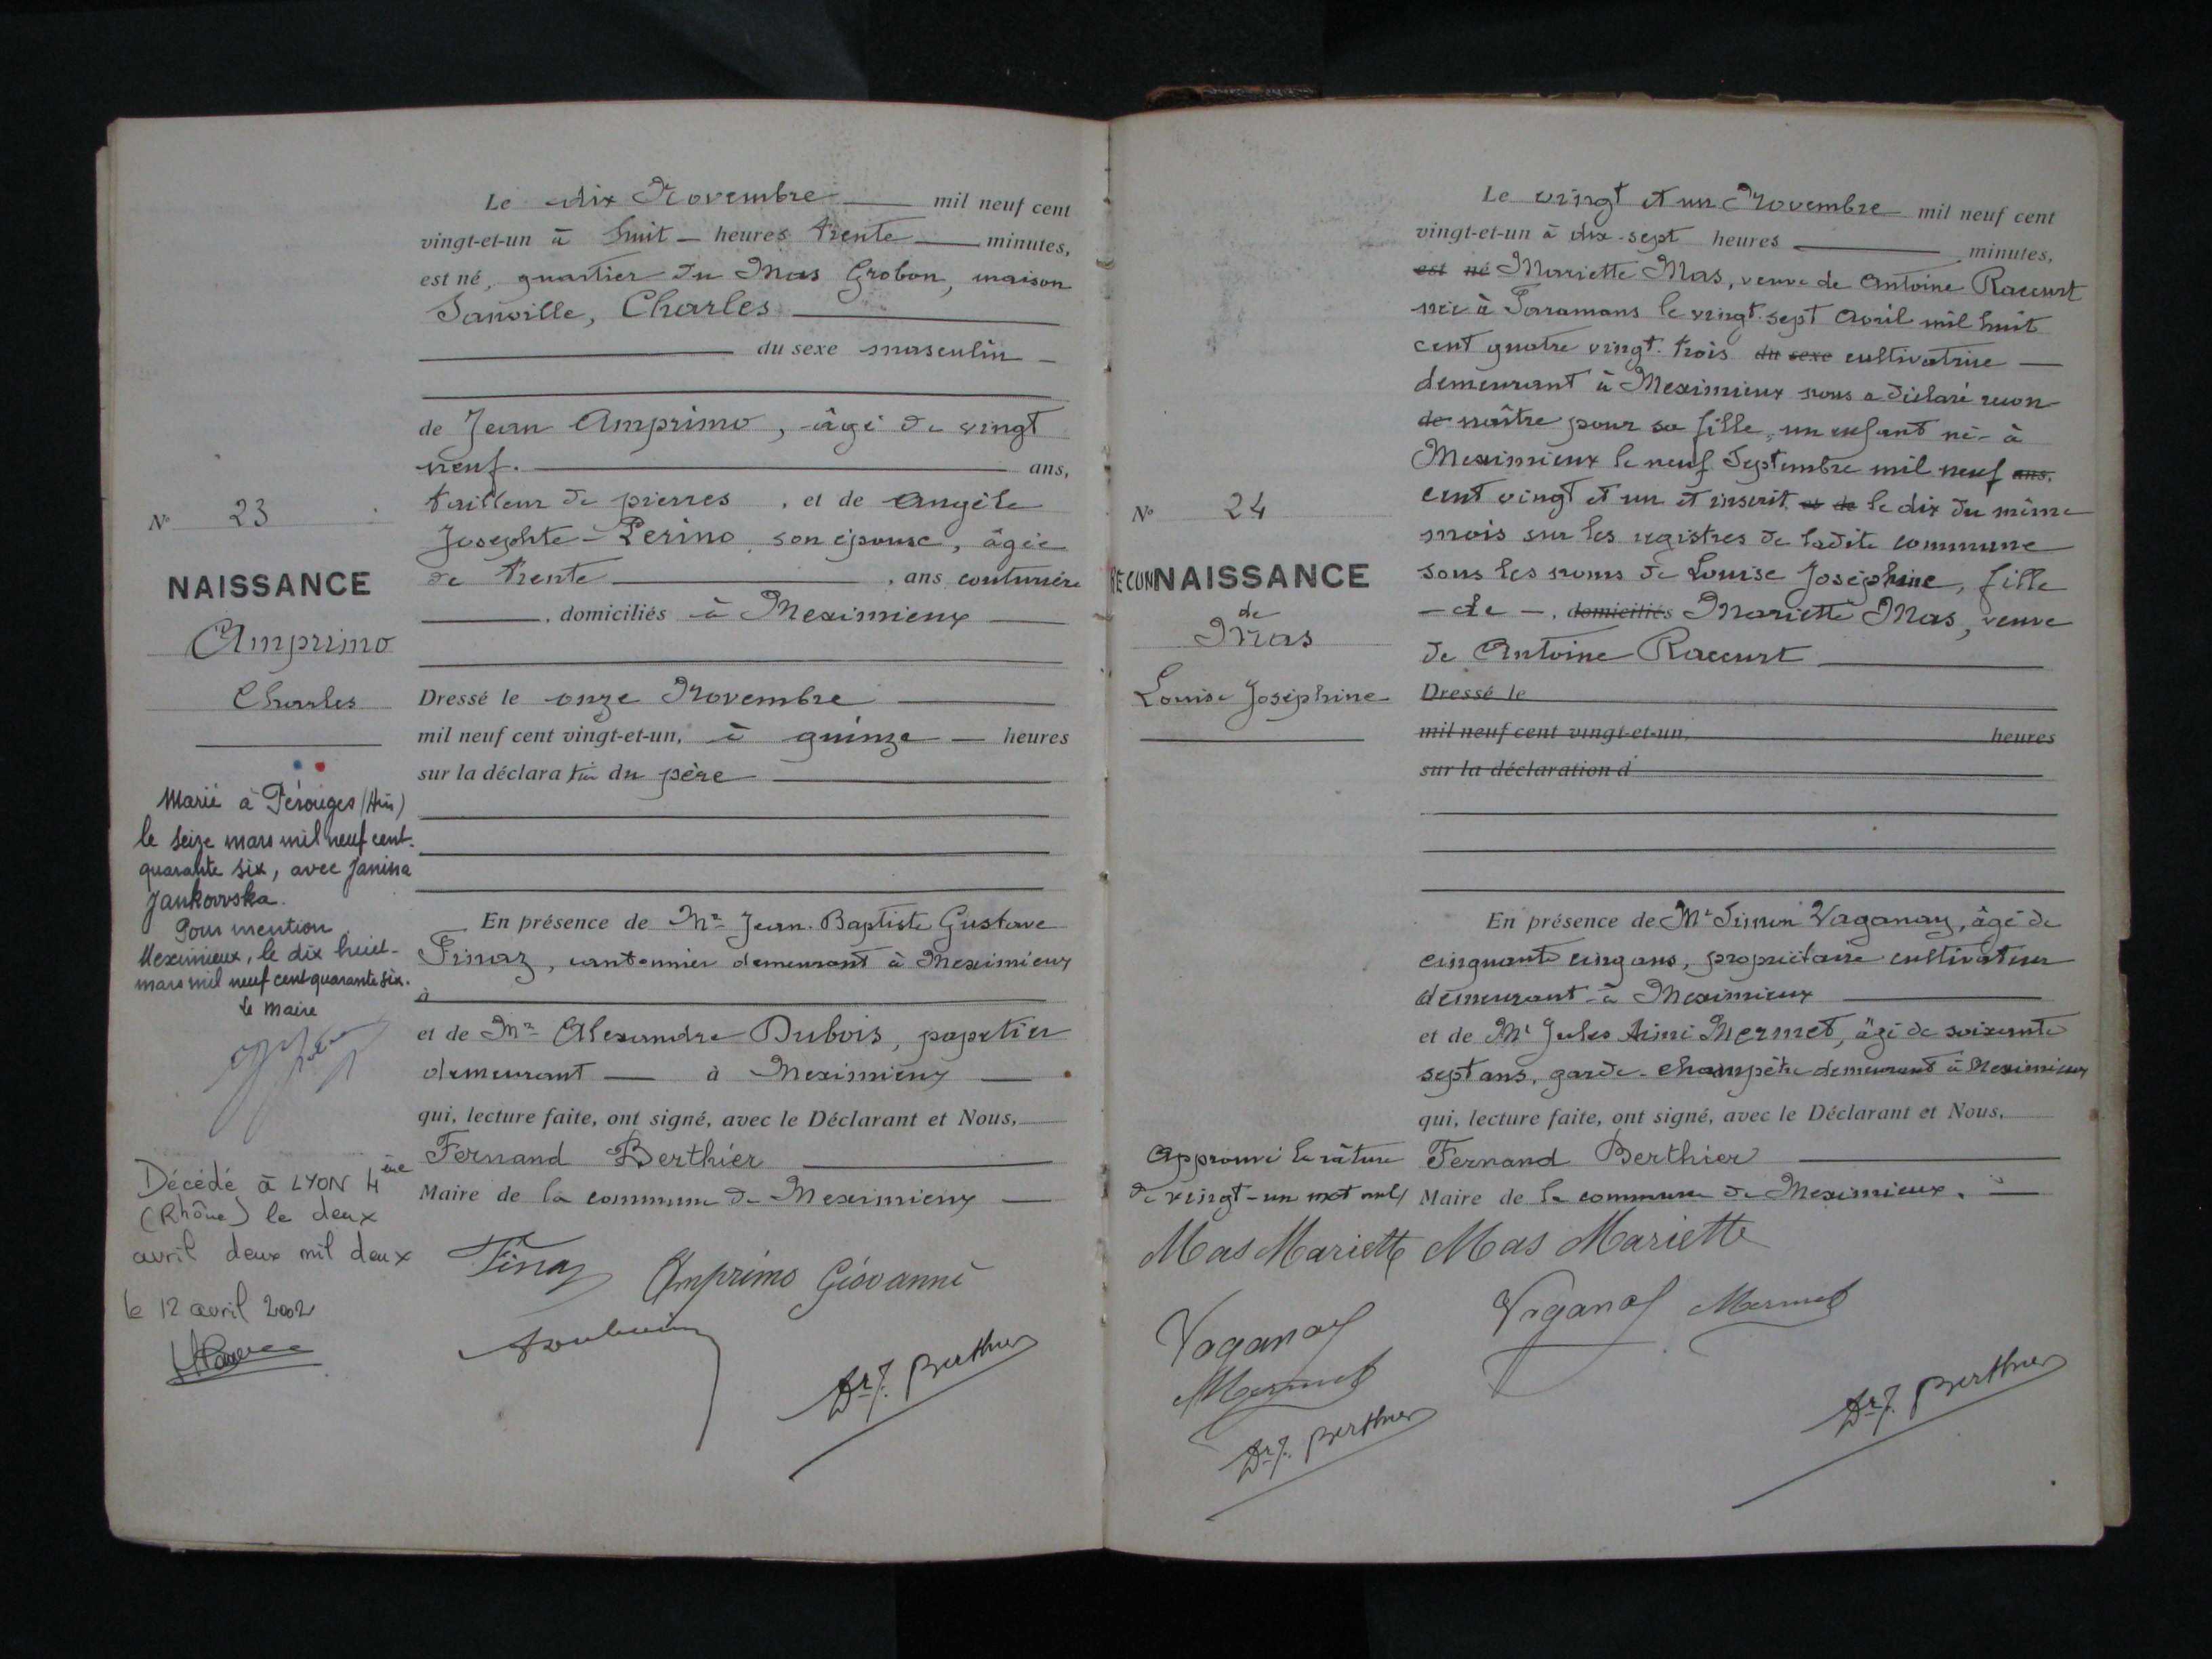 Le dix Novembre mil neuf cent
vingt-et-un à huit heures trente minutes,
est né, quartier du Mas Grobon, maison
Janville, Charles
du sexe masculin
de Jean Amprimo, âgé de vingt
neuf. ans,
tailleur de pierres, et de Angèle
Josephte Perino, son épouse, âgée
de trente, ans couturière
, domiciliés à Meximieux
N° 23
NAISSANCE
Amprimo
Charles
Dressé le onze Novembre
mil neuf cent vingt-et-un, à quinze heures
sur la déclaration du père
En présence de Mr Jean-Baptiste Gustave
Finaz, cantonnier demeurant à Meximieux
à
et de Mr Alexandre Dubois, papetier
demeurant à Meximieux
qui, lecture faite, ont signé, avec le Déclarant et Nous,
Fernand Berthier
Maire de la commune de Meximieux
Marié à Pérouges (Ain)
le seize mars mil neuf cent-
quarante six, avec Janina
Jankowska.
Pour mention
Meximieux, le dix huit-
mars mil neuf cent quarante six.
Le Maire
Décédé à LYON 4ème
(Rhône) le deux
avril deux mil deux
le 12 avril 2002
Finaz Amprimo Giovanni
Dr F. Berthier
Le vingt et un Novembre mil neuf cent
vingt-et-un à dix-sept heures minutes,
est né Mariette Mas, veuve de Antoine Raccurt
née à Faramans le vingt-sept Avril mil huit
cent quatre vingt-trois du sexe cultivatrice
demeurant à Meximieux nous a déclaré recon-
de naître pour sa fille, un enfant né à
Meximieux le neuf Septembre mil neuf ans,
cent vingt et un et inscrit et de le dix du même
mois sur les registres de ladite commune
sous les noms de Louise Joséphine, fille
de, domiciliés Mariette Mas, veuve
de Antoine Raccurt
N° 24
RECONNAISSANCE
de
Mas
Louise Joséphine
Dressé le
mil neuf cent vingt-et-un, heures
sur la déclaration d
En présence de Mr Simon Vaganay, âgé de
cinquante cinq ans, propriétaire cultivateur
demeurant à Meximieux
et de Mr Jules Aimé Mermet, âgé de soixante
sept ans, garde-champêtre demeurant à Meximieux
qui, lecture faite, ont signé, avec le Déclarant et Nous,
Fernand Berthier
Maire de la commune de Meximieux.
Approuvé la râture
de vingt-un mot nuls
Mas Mariette Mas Mariette
Vaganay Vaganay Mermet
Mermet
Dr F. Berthier
Dr F. Berthier